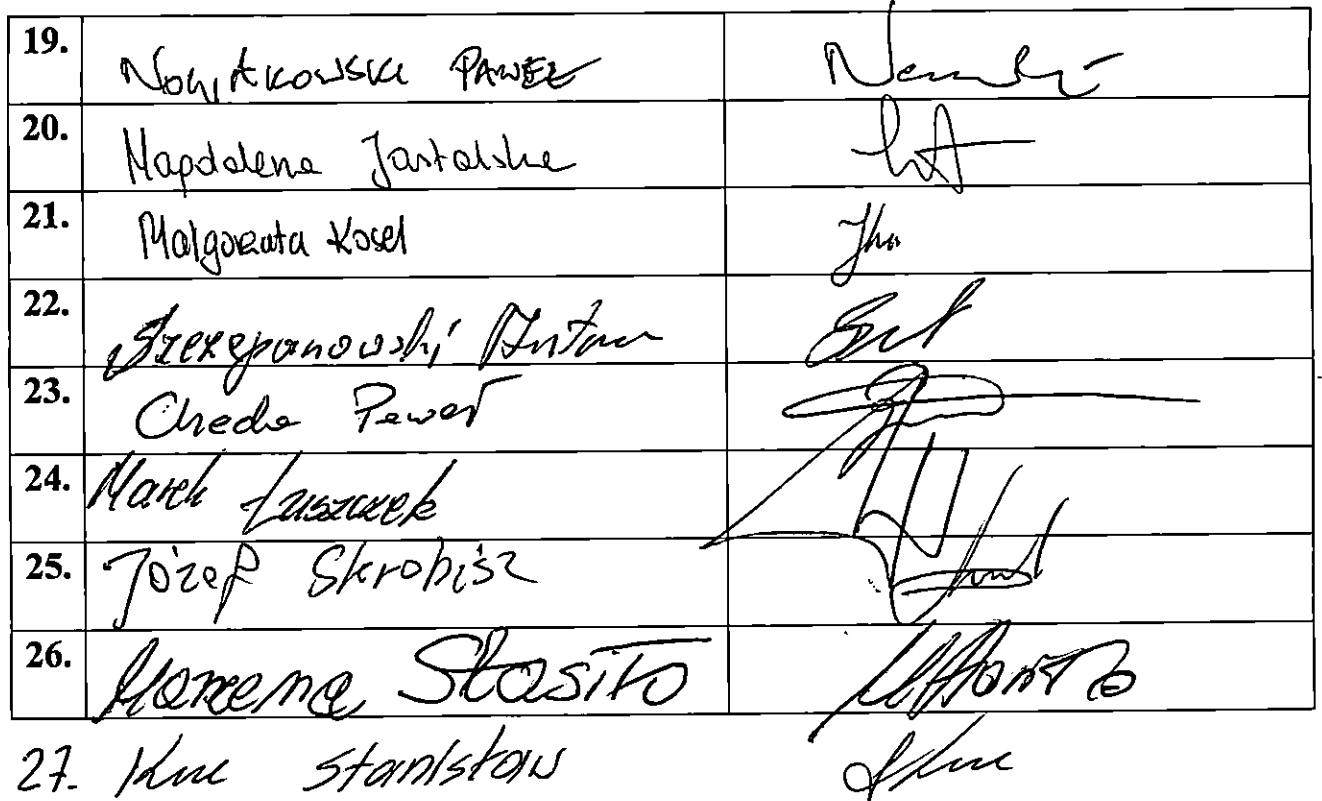 19. Nowitkowski PAWEŁ
20. Magdalena Jastalska
21. Małgorzata Kosel
22. Szczepanowski Antoni
23. Checha Paweł
24. Marek Łuszczek
25. Józef Skrobisz
26. Marzena Stasiło
27. Kuc Stanisław